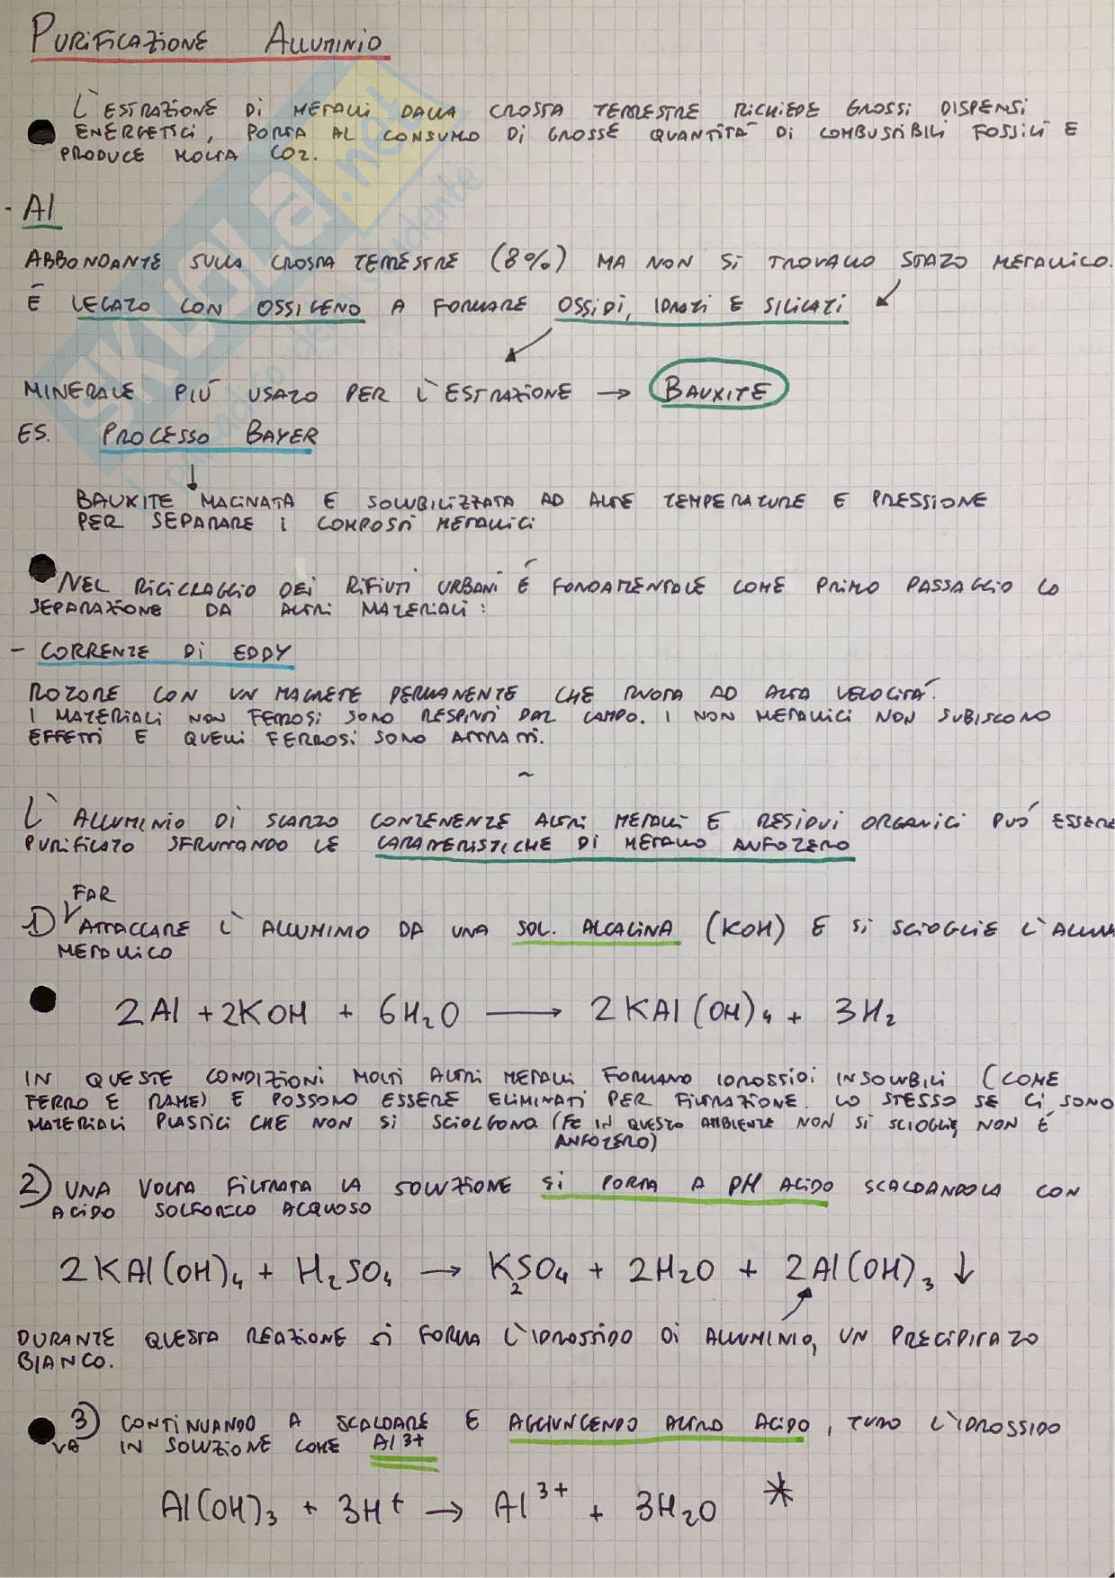 PURIFICAZIONE ALLUMINIO
L'ESTRAZIONE DI METALLI DALLA CROSTA TERRESTRE RICHIEDE GROSSI DISPENSI
ENERGETICI, PORTA AL CONSUMO DI GROSSE QUANTITÀ DI COMBUSTIBILI FOSSILI E
PRODUCE MOLTA CO2.
- Al
ABBONDANTE SULLA CROSTA TERRESTRE (8%) MA NON SI TROVALLO STAZO METALLICO.
É LEGATO CON OSSIGENO A FORMARE OSSIDI, IDRATI E SILICATI
MINERALE PIÚ USATO PER L'ESTRAZIONE → BAUXITE
ES. PROCESSO BAYER
BAUXITE MACINATA E SOLUBILIZZATA AD ALTE TEMPERATURE E PRESSIONE
PER SEPARARE I COMPOSTI METALLICI
NEL RICICLAGGIO DEI RIFIUTI URBANI É FONDAMENTALE COME PRIMO PASSAGGIO LO
SEPARAZIONE DA ALTRI MATERIALI:
- CORRENTE DI EDDY
ROTORE CON UN MAGNETE PERMANENTE CHE RUOTA AD ALTA VELOCITÁ.
I MATERIALI NON FERROSI SONO RESPINTI DAL CAMPO. I NON METALLICI NON SUBISCONO
EFFETTI E QUELLI FERROSI SONO ATTRATTI.
~
L'ALLUMINIO DI SCARTO CONTENENTE ALTRI METALLI E RESIDUI ORGANICI PUÓ ESSERE
PURIFICATO SFRUTTANDO LE CARATTERISTICHE DI METALLO ANFOTERO
FAR
1) ATTACCARE L'ALLUMINIO DA UNA SOL. ALCALINA (KOH) E SI SCIOGLIE L'ALLUM
METALLICO
2Al + 2KOH + 6H₂O → 2KAl(OH)₄ + 3H₂
IN QUESTE CONDIZIONI MOLTI ALTRI METALLI FORMANO IDROSSIDI INSOLUBILI (COME
FERRO E RAME) E POSSONO ESSERE ELIMINATI PER FILTRAZIONE. LO STESSO SE CI SONO
MATERIALI PLASTICI CHE NON SI SCIOLGONO (Fe IN QUESTO AMBIENTE NON SI SCIOGLIE, NON É
ANFOTERO)
2) UNA VOLTA FILTRATA LA SOLUZIONE SI PORTA A PH ACIDO SCALDANDOLA CON
ACIDO SOLFORICO ACQUOSO
2KAl(OH)₄ + H₂SO₄ → K₂SO₄ + 2H₂O + 2Al(OH)₃ ↓
DURANTE QUESTA REAZIONE SI FORMA L'IDROSSIDO DI ALLUMINIO, UN PRECIPITATO
BIANCO.
3) CONTINUANDO A SCALDARE E AGGIUNGENDO ALTRO ACIDO, TUTTO L'IDROSSIDO
VA IN SOLUZIONE COME Al³⁺
Al(OH)₃ + 3H⁺ → Al³⁺ + 3H₂O *
SKUOLA.net